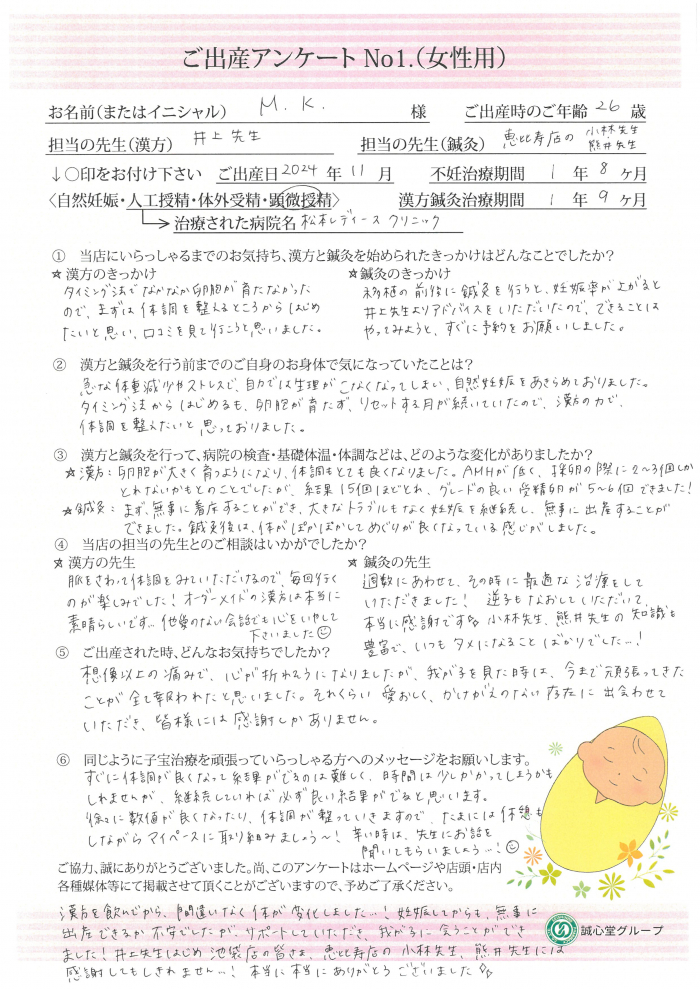 ご出産アンケート No1.(女性用)
お名前(またはイニシャル) M. K. 様 ご出産時のご年齢 26 歳
担当の先生(漢方) 井上先生 担当の先生(鍼灸) 恵比寿店の 小林先生 熊井先生
↓○印をお付け下さい ご出産日 2024 年 11 月 不妊治療期間 1 年 8 ヶ月
〈自然妊娠・人工授精・体外受精・顕微授精〉 漢方鍼灸治療期間 1 年 9 ヶ月
治療された病院名 松本レディース クリニック
① 当店にいらっしゃるまでのお気持ち、漢方と鍼灸を始められたきっかけはどんなことでしたか?
★漢方のきっかけ
タイミング法でなかなか卵胞が育たなかった
ので、まずは体調を整えるところからはじめ
たいと思い、口コミを見て行こうと思いました。
★鍼灸のきっかけ
移植の前後に鍼灸を行うと、妊娠率が上がると
井上先生よりアドバイスをいただいたので、できることは
やってみようと、すぐに予約をお願いしました。
② 漢方と鍼灸を行う前までのご自身のお身体で気になっていたことは?
急な体重減少やストレスで、自力では生理がこなくなってしまい、自然妊娠をあきらめておりました。
タイミング法からはじめるも、卵胞が育たず、リセットする月が続いていたので、漢方の力で、
体調を整えたいと思っておりました。
③ 漢方と鍼灸を行って、病院の検査・基礎体温・体調などは、どのような変化がありましたか?
★漢方:卵胞が大きく育つようになり、体調もとても良くなりました。AMHが低く、採卵の際に2〜3個しか
とれないかもとのことでしたが、結果15個ほどとれ、グレードの良い受精卵が5〜6個できました!
★鍼灸:まず、無事に着床することができ、大きなトラブルもなく妊娠を継続し、無事に出産することが
できました。鍼灸後は、体がぽかぽかしてめぐりが良くなっている感じがしました。
④ 当店の担当の先生とのご相談はいかがでしたか?
★漢方の先生
脈をさわって体調をみていただけるので、毎回行く
のが楽しみでした!オーダーメイドの漢方は本当に
素晴らしいです。他愛のない会話でも心をいやして
下さいました☺
★鍼灸の先生
週数にあわせて、その時に最適な治療をして
いただきました! 逆子もなおしていただいて、
本当に感謝です 小林先生、熊井先生の知識も
豊富で、いつもタメになることばかりでした…!
⑤ ご出産された時、どんなお気持ちでしたか?
想像以上の痛みで、心が折れそうになりましたが、我が子を見た時は、今まで頑張ってきた
ことが全て報われたと思いました。それくらい愛おしく、かけがえのない存在に出会わせて
いただき、皆様には感謝しかありません。
⑥ 同じように子宝治療を頑張っていらっしゃる方へのメッセージをお願いします。
すぐに体調が良くなって結果がでるのは難しく、時間は少しかかってしまうかも
しれませんが、継続していれば必ず良い結果がでると思います。
徐々に数値が良くなったり、体調が整っていきますので、たまには休憩も
しながらマイペースに取り組みましょう〜!辛い時は、先生にお話を
聞いてもらいましょう…!☺
ご協力、誠にありがとうございました。尚、このアンケートはホームページや店頭・店内
各種媒体等にて掲載させて頂くことがございますので、予めご了承ください。
漢方を飲んでから、間違いなく体が変化しました…!妊娠してからも、無事に
出産できるか不安でしたが、サポートしていただき、我が子に会うことができ
ました!井上先生はじめ池袋店の皆さま、恵比寿店の小林先生、熊井先生には
感謝してもしきれません…!本当に本当にありがとうございました
誠心堂グループ